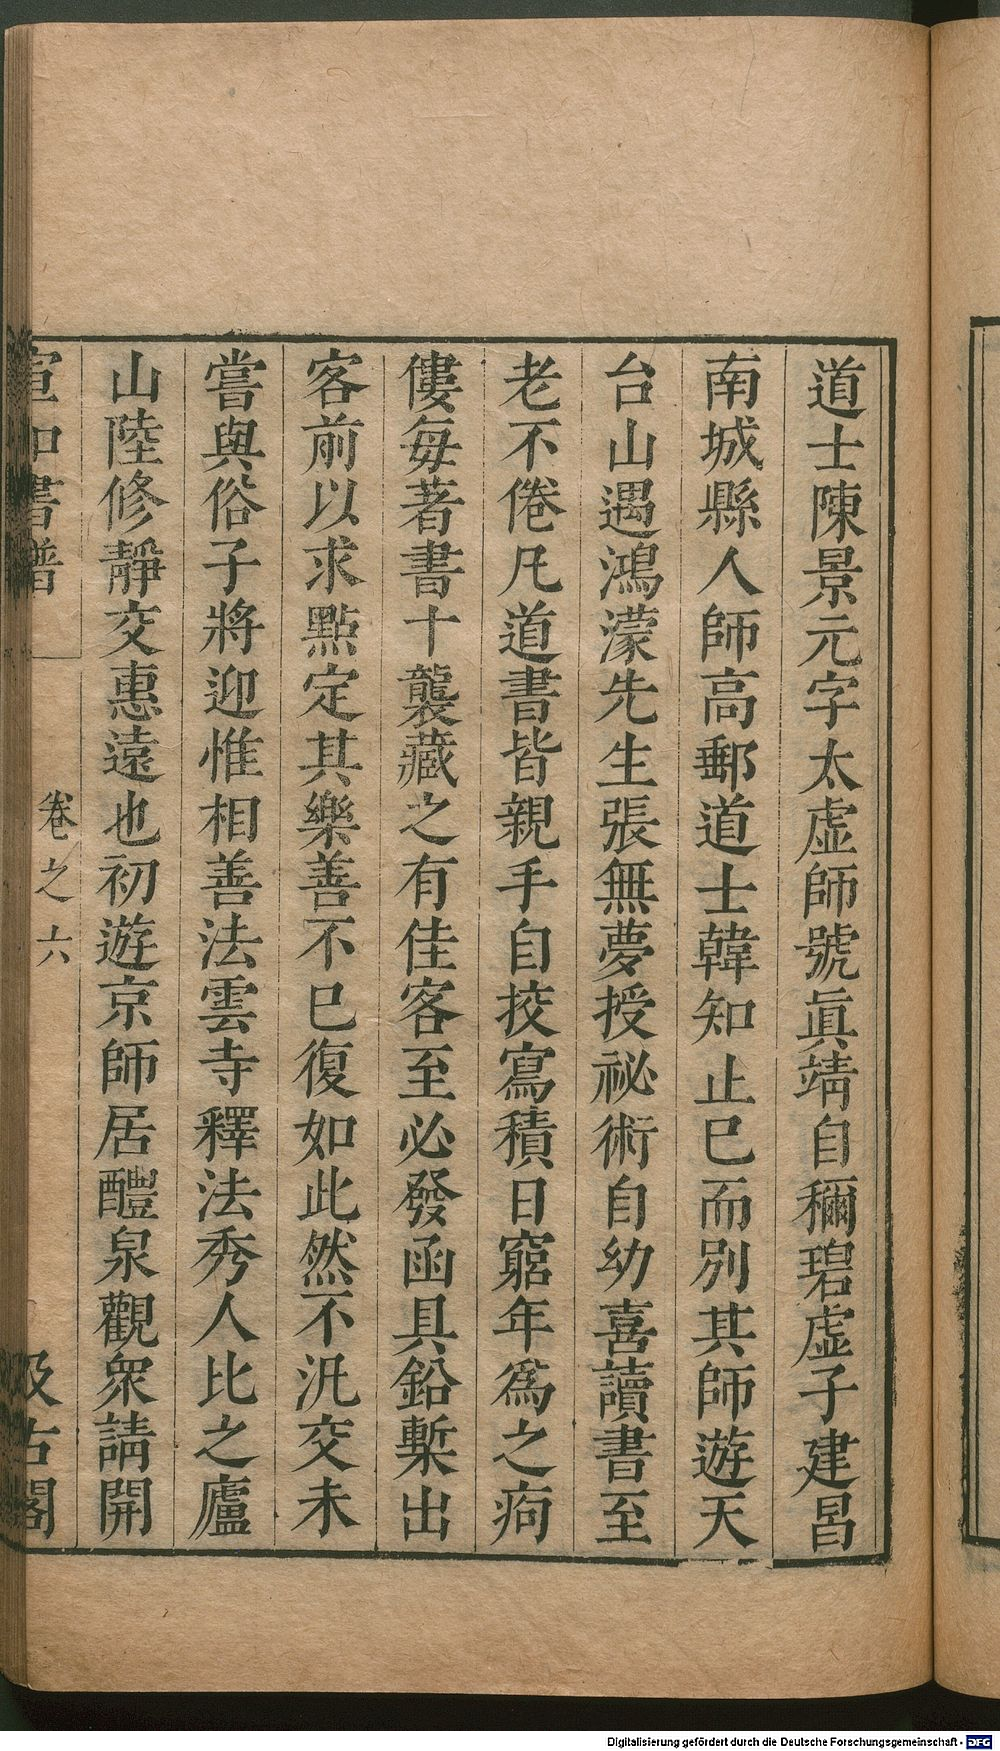 道士陳景元字太虛師號眞靖自稱碧虛子建昌
南城縣人師高郵道士韓知止已而別其師遊天
台山遇鴻濛先生張無夢授祕術自幼喜讀書至
老不倦凡道書皆親手自挍寫積日窮年爲之痀
僂每著書十襲藏之有佳客至必發函具鉛槧出
客前以求點定其樂善不已復如此然不汎交未
嘗與俗子將迎惟相善法雲寺釋法秀人比之廬
山陸修靜交惠遠也初遊京師居醴泉觀衆請開
宣和書譜 卷之六 汲古閣
Digitalisierung gefördert durch die Deutsche Forschungsgemeinschaft - DFG